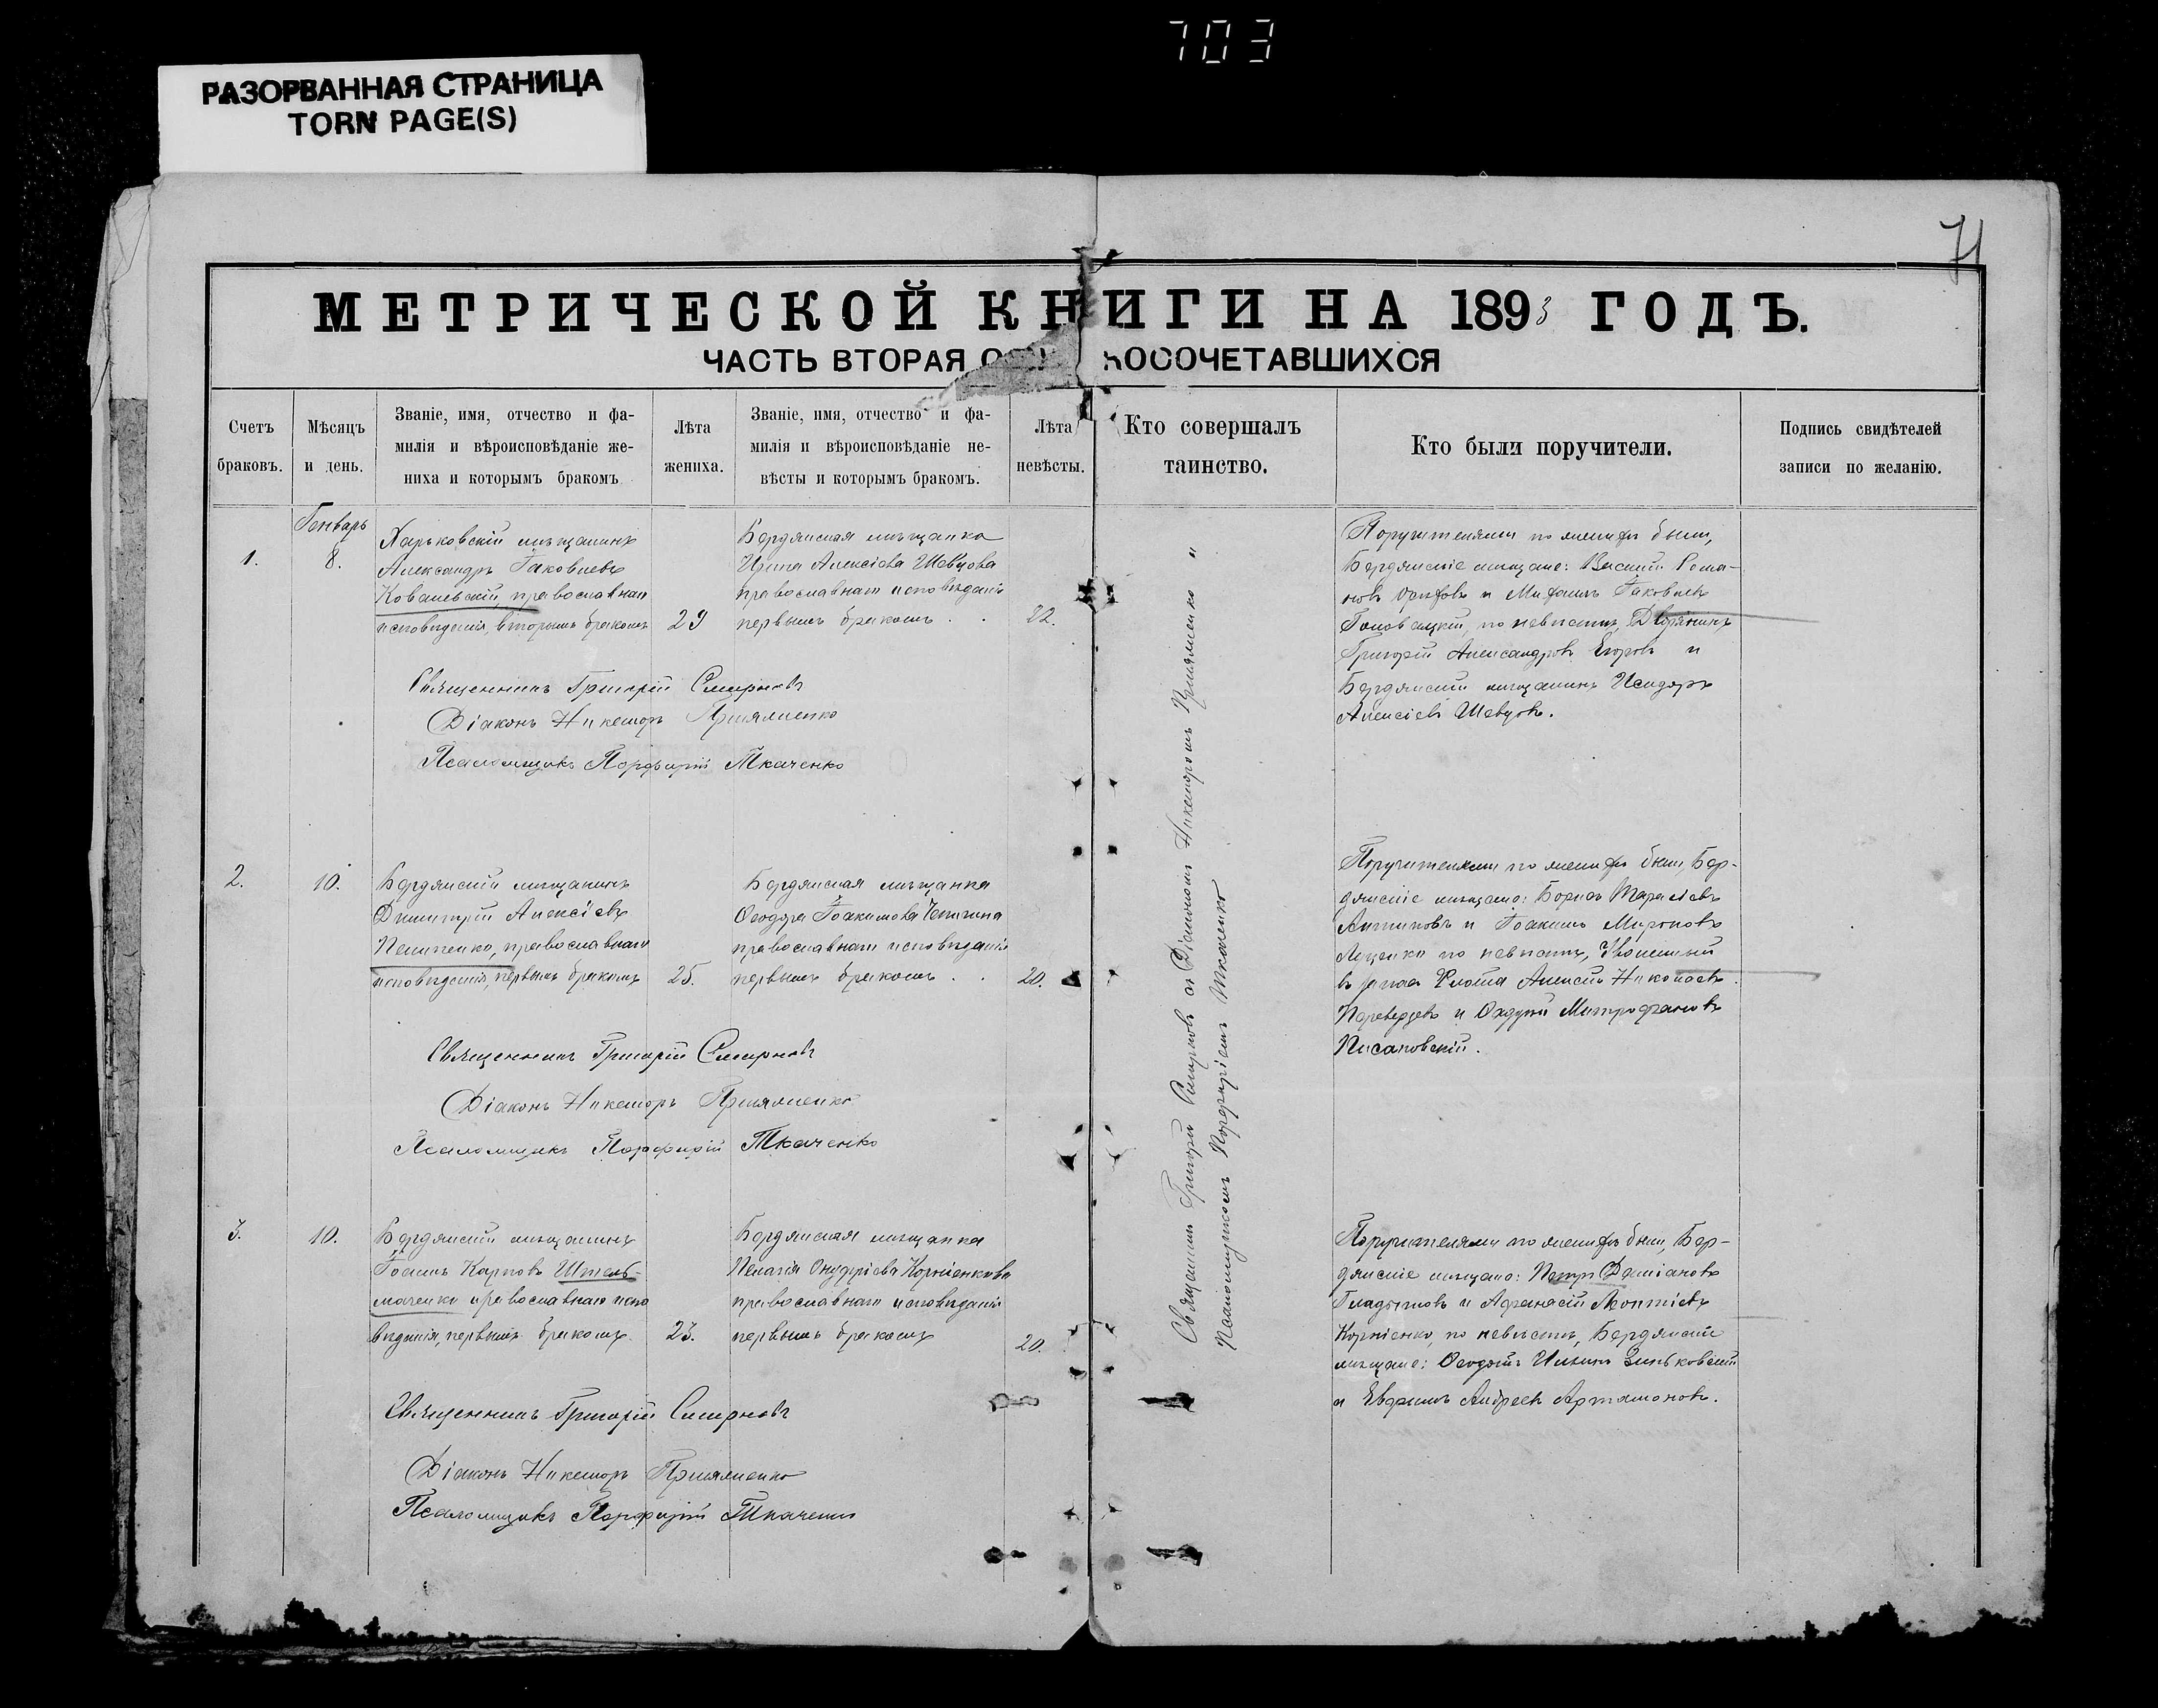 703
РАЗОРВАННАЯ СТРАНИЦА
TORN PAGE(S)
71
МЕТРИЧЕСКОЙ КНИГИ НА 1893 ГОДЪ.
ЧАСТЬ ВТОРАЯ О КОСОЧЕТАВШИХСЯ
Счетъ
браковъ.
Мѣсяцъ
и день.
Званіе, имя, отчество и фа-
милія и вѣроисповѣданіе же-
ниха и которымъ бракомъ
Лѣта
жениха.
Званіе, имя, отчество и фа-
милія и вѣроисповѣданіе не-
вѣсты и которымъ бракомъ.
Лѣта
невѣсты.
Кто совершалъ
таинство.
Кто были поручители.
Подпись свидѣтелей
записи по желанію.
1.
Генварь
8.
Харьковскій мѣщанинъ
Александръ Іаковлевъ
Ковалевскій, православнаго
исповѣданія, вторымъ бракомъ
29
Бердянская мѣщанка
Ирина Алексіева Шевцова
православнаго исповѣданія
первымъ бракомъ . .
22.
Поручителями по женихѣ были,
Бердянскіе мѣщане: Василій Рома-
новъ и Іаковлевъ
Головацкій, по невѣстѣ, Дворянинъ
Григорій Александровъ Егоровъ и
Бердянскій мѣщанинъ Исидоръ
Алексіевъ Шевцовъ.
Священникъ Григорій Смирновъ
Діаконъ Никеморъ
Псаломщикъ Порфирій Ткаченко
2.
10.
Бердянскій мѣщанинъ
Димитрій Алексіевъ
Пелипенко, православнаго
исповѣданія, первымъ бракомъ
25.
Бердянская мѣщанка
Ѳеодора Іоакимова
православнаго исповѣданія
первымъ бракомъ . .
20.
Поручителями по женихѣ были, Бер-
дянскіе мѣщане: Борисъ Тарасіевъ
Антиповъ и Іоакимъ Мироновъ
по невѣстѣ,
въ запас Флота Алексій Николаевъ
и Митрофановъ
Писановскій.
Священникъ Григорій Смирновъ
Діаконъ Никеморъ
Псаломщикъ Порфирій Ткаченко
3.
10.
Бердянскій мѣщанинъ
Карповъ Штель-
маченко православнаго испо
вѣданія, первымъ бракомъ.
23.
Бердянская мѣщанка
Пелагія Онуфріева Корніенкова
православнаго исповѣданія
первымъ бракомъ
20.
Поручителями по женихѣ были, Бер-
дянскіе мѣщане: Петръ Даміановъ
и Афанасій Леонтіевъ
Корніенко, по невѣстѣ, Бердянскіе
мѣщане: Ильинъ Зиньковскій
и Евфимъ Андреевъ Артамоновъ.
Священникъ Григорій Смирновъ
Діаконъ Никеморъ
Псаломщикъ Порфирій Ткаченко
Священникъ Григорій Смирновъ съ Діакономъ Никеморомъ "
Псаломщикомъ Порфиріемъ Ткаченко